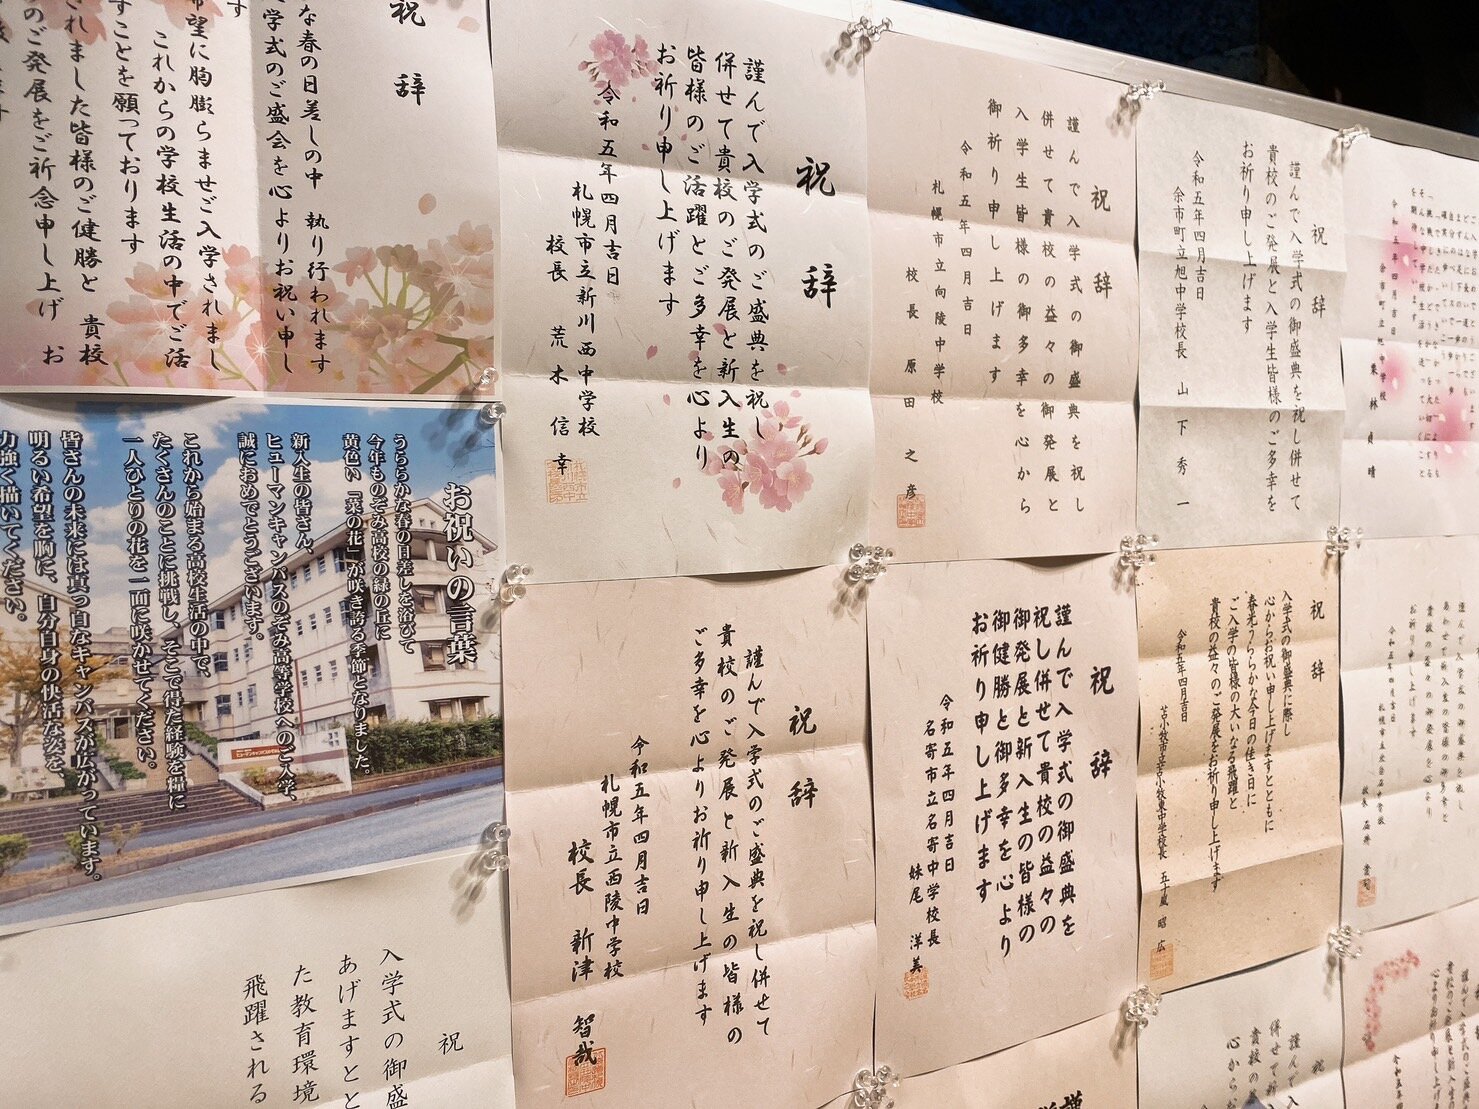 祝
辞
な春の日差しの中　執り行われます
学式のご盛会を心よりお祝い申し
希望に胸膨らませご入学されまし
これからの学校生活の中でご活
すことを願っております
れました皆様のご健勝と　貴校
のご発展をご祈念申し上げ　お
祝辞
謹んで入学式のご盛典を祝し
併せて貴校のご発展と新入生の
皆様のご活躍とご多幸を心より
お祈り申し上げます
令和五年四月吉日
札幌市立新川西中学校
校長　荒木信幸
祝辞
謹んで入学式の御盛典を祝し
併せて貴校の益々の御発展と
入学生皆様の御多幸を心から
御祈り申し上げます
令和五年四月吉日
札幌市立向陵中学校
校長　原田之彦
祝辞
謹んで入学式の御盛典を祝し併せて
貴校のご発展と入学生皆様のご多幸を
お祈り申し上げます
令和五年四月吉日
余市町立旭中学校長　山下秀一
令和五年四月吉日
余市町立旭中学校　栗林貞晴
お祝いの言葉
うららかな春の日差しを浴びて
今年ものぞみ高校の緑の丘に
黄色い「菜の花」が咲き誇る季節となりました。
新入生の皆さん、
ヒューマンキャンパスのぞみ高等学校へのご入学、
誠におめでとうございます。
これから始まる高校生活の中で、
たくさんのことに挑戦し、そこで得た経験を糧に
一人ひとりの花を一面に咲かせてください。
皆さんの未来には真っ白なキャンバスが広がっています。
明るい希望を胸に、自分自身の快活な姿を、
力強く描いてください。
祝辞
謹んで入学式のご盛典を祝し併せて
貴校のご発展と新入生の皆様の
ご多幸を心よりお祈り申し上げます
令和五年四月吉日
札幌市立西陵中学校
校長　新津智哉
祝辞
謹んで入学式の御盛典を
祝し併せて貴校の益々の
御発展と新入生の皆様の
御健勝と御多幸を心より
お祈り申し上げます
令和五年四月吉日
名寄市立名寄中学校長
妹尾洋美
祝辞
入学式の御盛典に際し
心からお祝い申し上げますとともに
春光うららかな今日の佳き日に
ご入学の皆様の大いなる飛躍と
貴校の益々のご発展をお祈り申し上げます
令和五年四月吉日
苫小牧市立苫小牧東中学校長　五十嵐昭広
謹んで入学式の御盛典を祝し
あわせて新入生の皆様の御多幸と
貴校の益々の御発展を心より
お祈り申し上げます
令和五年四月吉日
祝
入学式の御盛
あげますとと
た教育環境
飛躍される
祝
謹んで入
併せて
貴校の
心からお